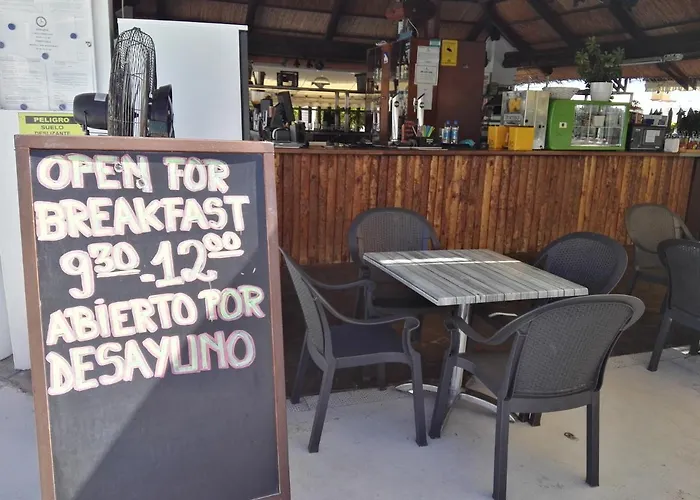 PELIGRO
SUELO
DESLIZANTE
OPEN FOR
BREAKFAST
9³⁰-12⁰⁰
ABIERTO POR
DESAYUNO